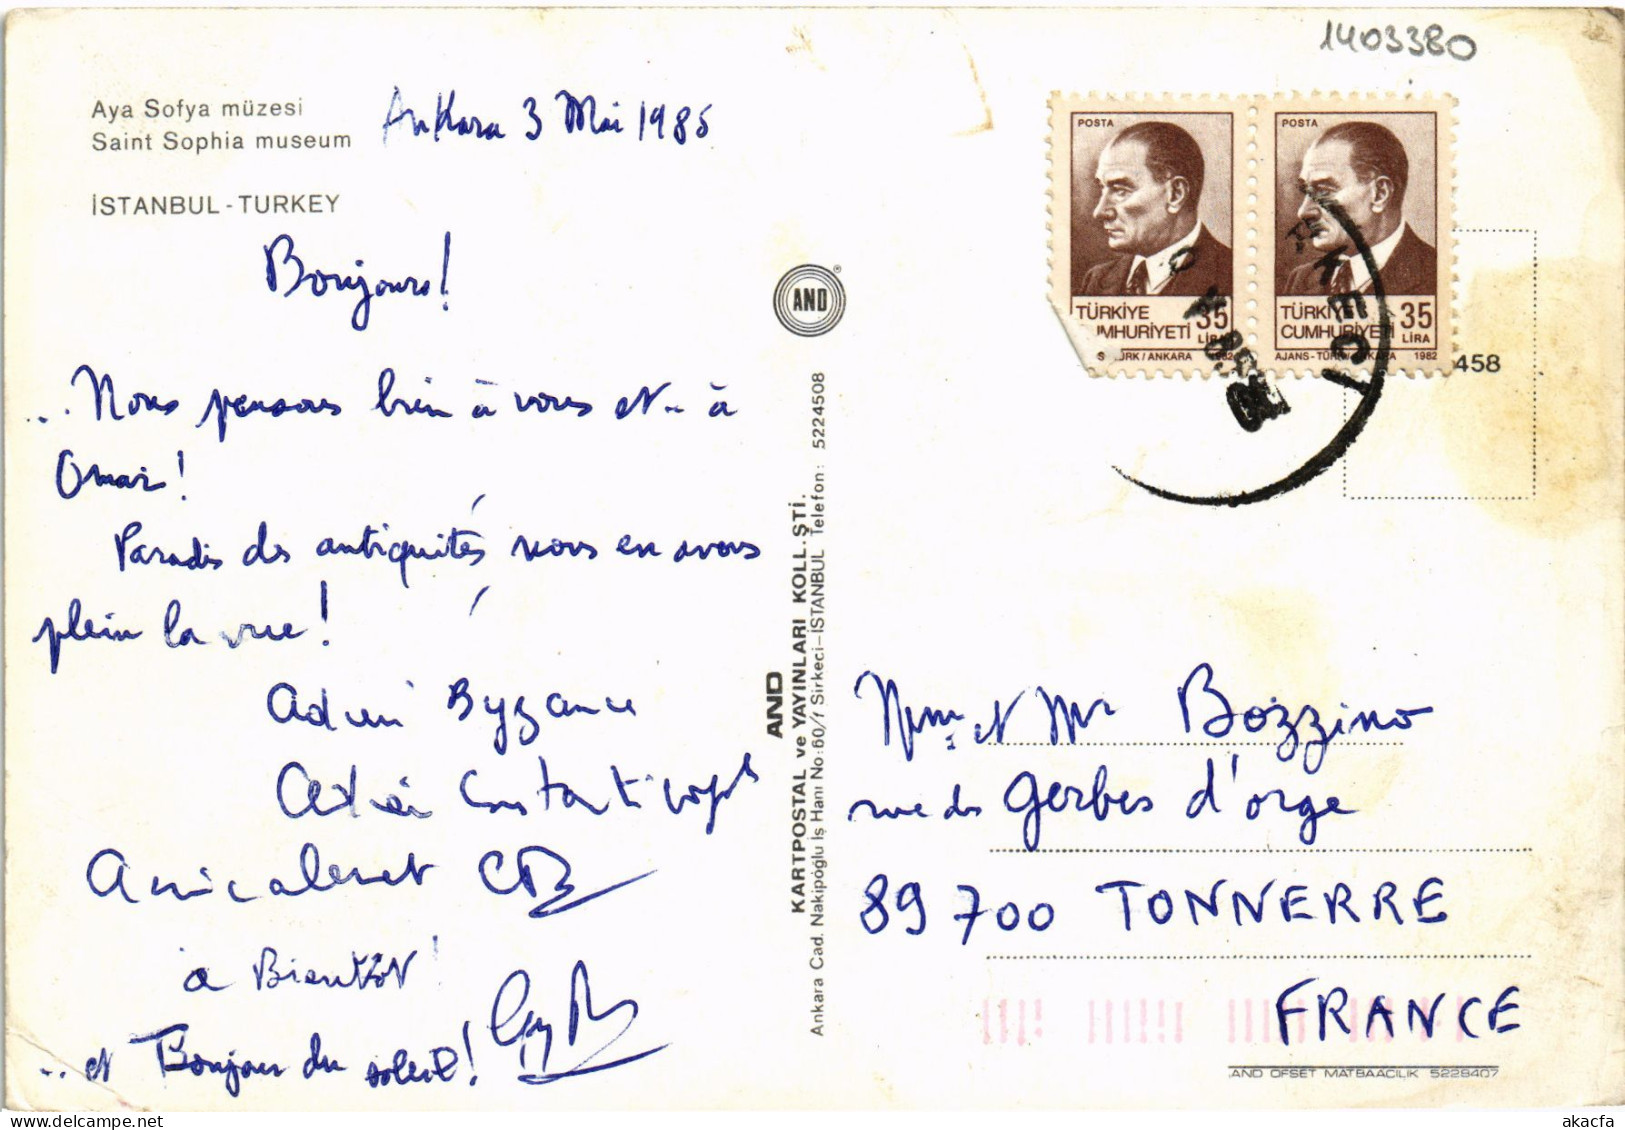 1403380
Aya Sofya müzesi
Saint Sophia museum
İSTANBUL - TURKEY
Ankara 3 Mai 1985
Bonjours!
.. Nous pensons bien à vous et .. à
Omar!
Paradis des antiquités nous en avons
plein la vue!
Adieu Byzance
Adieu Constantinople
Amicalement
à Bientôt!
.. et Bonjour du soleil!
AND
AND
KARTPOSTAL ve YAYINLARI KOLL. ŞTİ.
Ankara Cad. Nakipoğlu İş Hanı No: 60/1 Sirkeci-İSTANBUL Telefon: 5224508
POSTA
TÜRKİYE
UMHURİYETİ
35
LİRA
ÜRK/ANKARA 1982
POSTA
TÜRKİYE
CUMHURİYETİ
35
LİRA
AJANS-TÜRK/ANKARA 1982
458
Mme et Mr Bozzino
rue des Gerbes d'orge
89700 TONNERRE
FRANCE
AND OFSET MATBAACILIK 5228407
akacfa